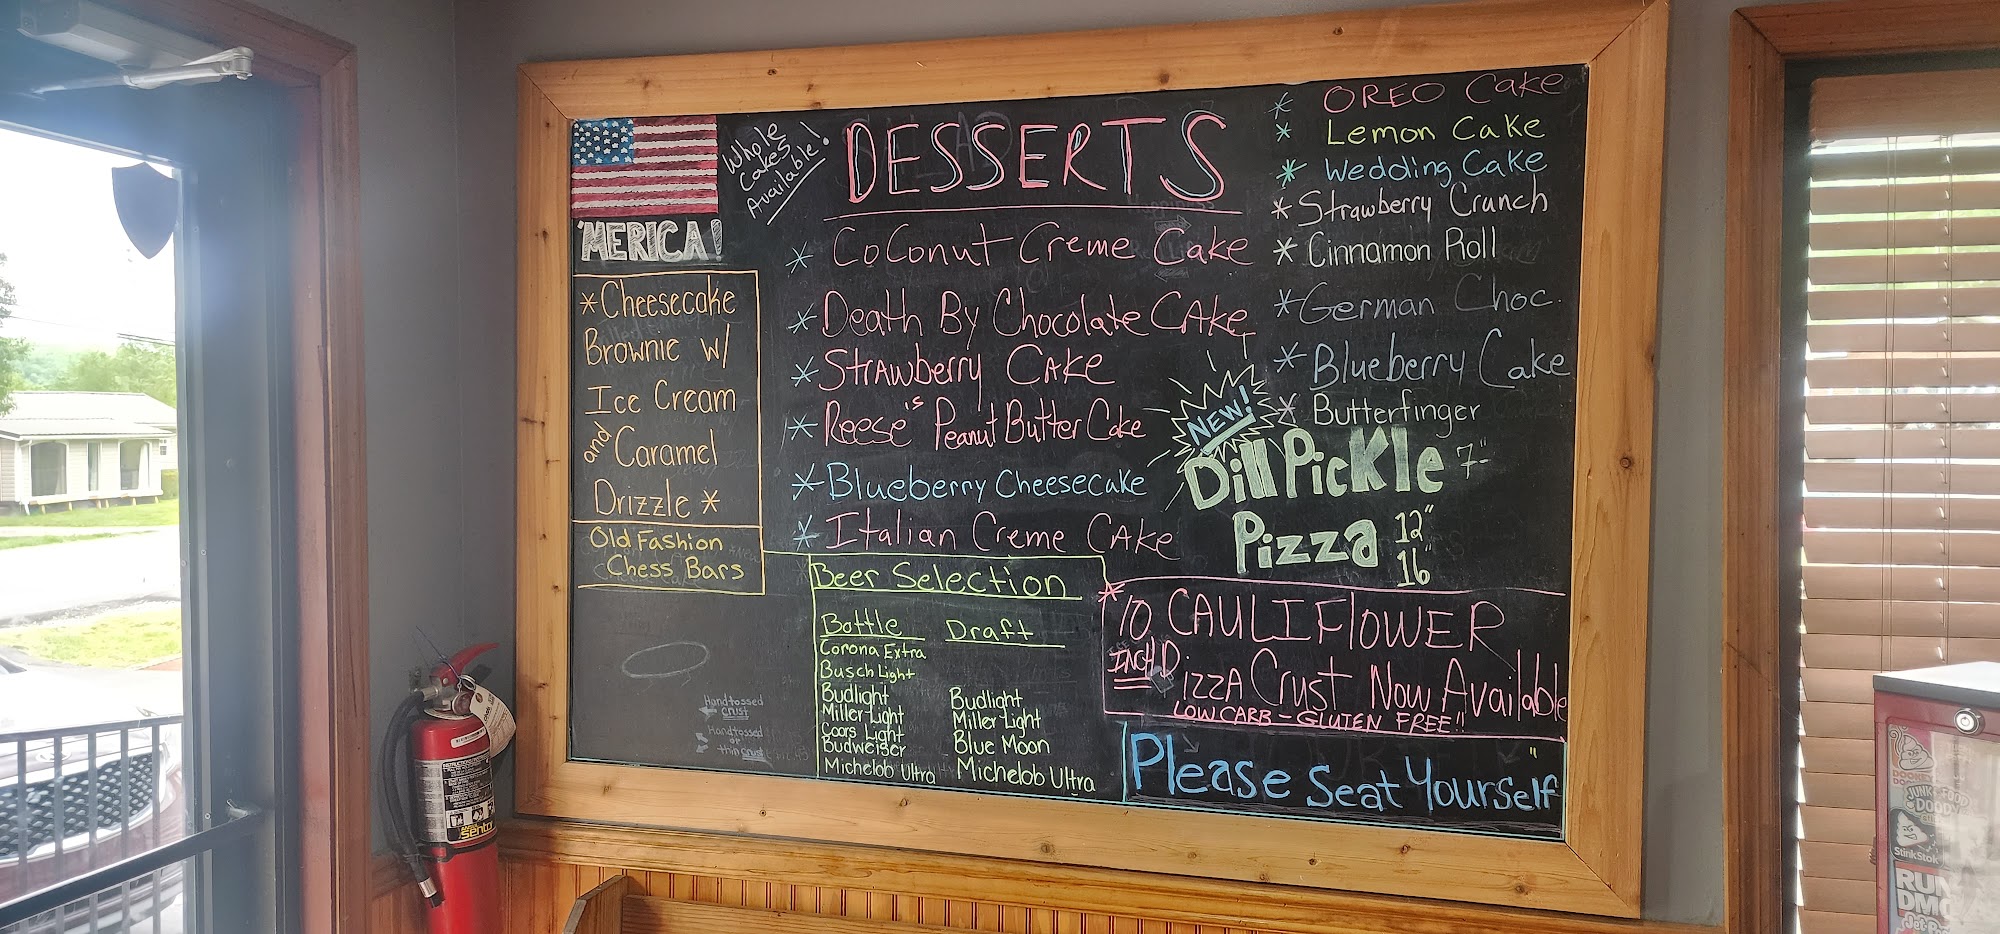 'MERICA!
Whole
Cakes
Available!
DESSERTS
* Coconut Creme Cake
* Death By Chocolate Cake
* Strawberry Cake
* Reese's Peanut Butter Cake
* Blueberry Cheesecake
* Italian Creme Cake
* OREO Cake
* Lemon Cake
* Wedding Cake
* Strawberry Crunch
* Cinnamon Roll
* German Choc.
* Blueberry Cake
* Butterfinger
*Cheesecake
Brownie w/
Ice Cream
and Caramel
Drizzle *
Old Fashion
Chess Bars
NEW!
Dill Pickle 7"
Pizza 12"
16"
Beer Selection
Bottle
Corona Extra
Busch Light
Budlight
Miller Light
Coors Light
Budweiser
Michelob Ultra
Draft
Budlight
Miller Light
Blue Moon
Michelob Ultra
*10 CAULIFLOWER
INCH Pizza Crust Now Available
LOW CARB - GLUTEN FREE!!
Please Seat Yourself
Handtossed
crust
Handtossed
or
thin crust
INSTRUCTIONS
Sentry
JUNK FOOD
DOODY
StinkStok
RUN
DMC